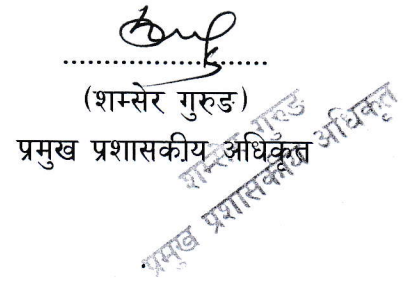 .................................
(शम्सेर गुरुङ)
प्रमुख प्रशासकीय अधिकृत
शम्सेर गुरुङ
प्रमुख प्रशासकीय अधिकृत